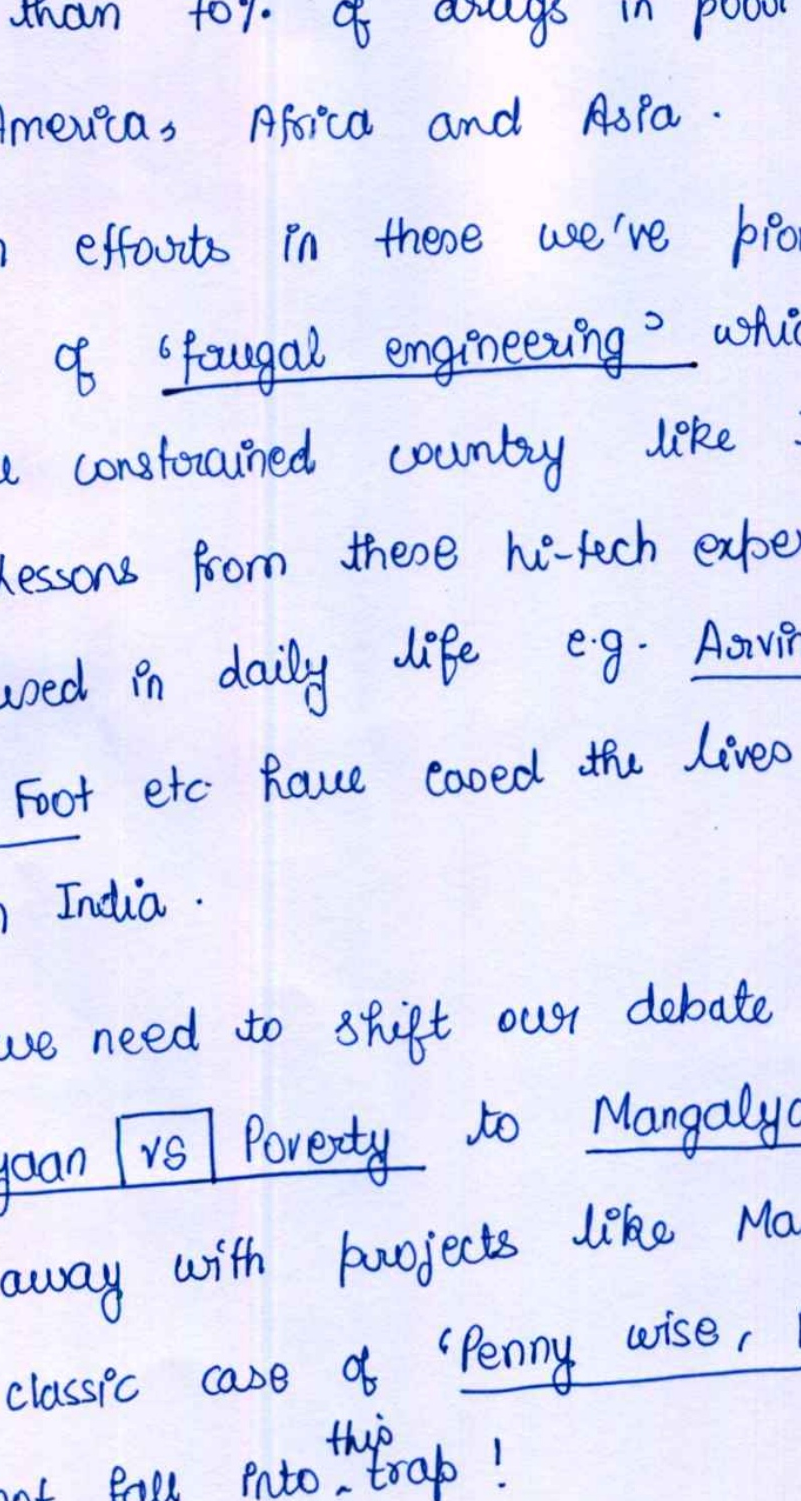 than 70% of drugs in poor
America, Africa and Asia.
efforts in these we've pion
of 'frugal engineering' whic
constrained country like
Lessons from these hi-tech exper
used in daily life e.g. Arvin
Foot etc have eased the lives
India.
we need to shift our debate
yaan vs Poverty to Mangalya
away with projects like Ma
classic case of 'Penny wise,
fall into this trap!